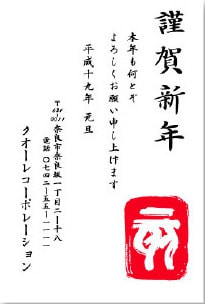 謹賀新年
本年も何とぞ
よろしくお願い申し上げます
平成十九年 元旦
〒631
奈良市奈良坂一丁目二ー十八
電話 〇七四二ー五五ー一一一一
クオーレコーポレーション